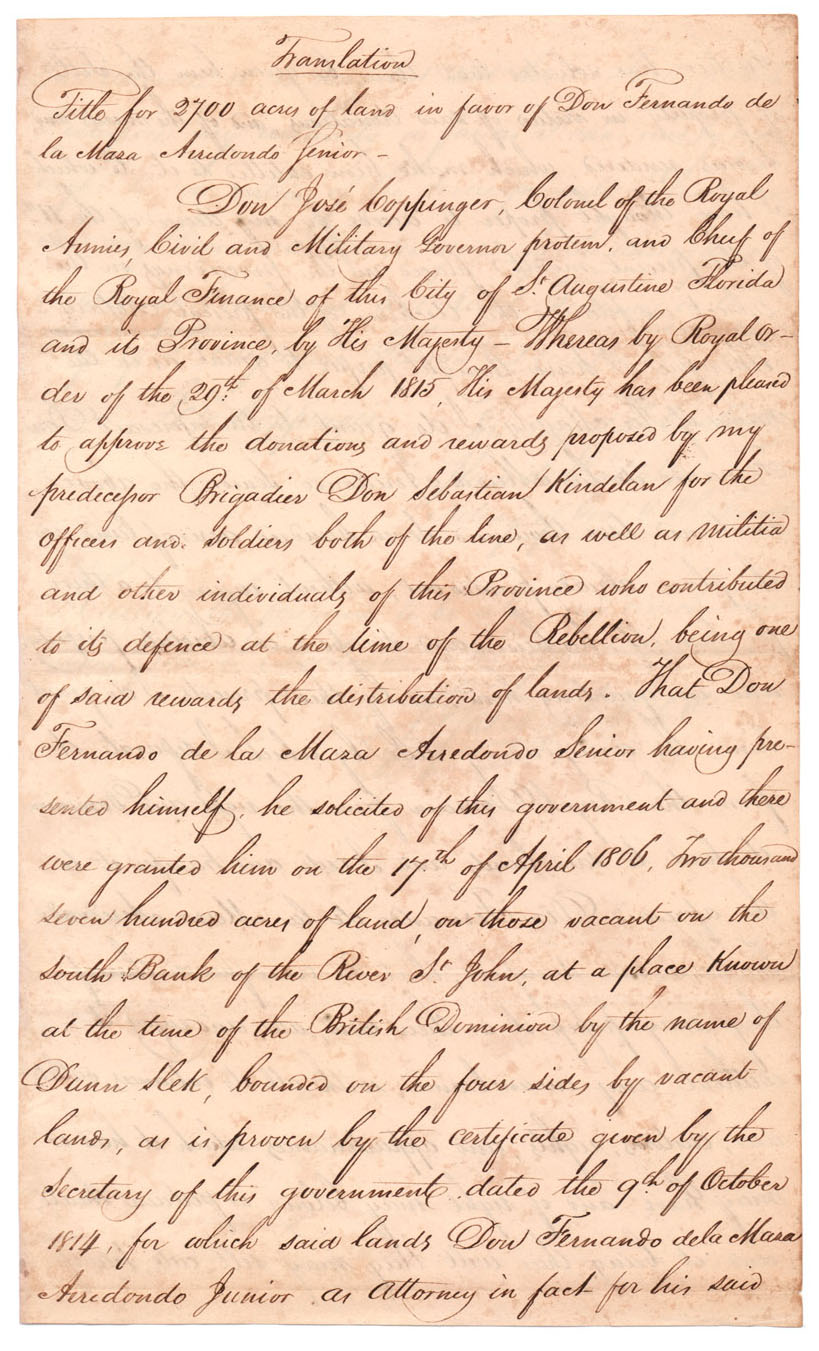 Translation
Title for 2700 acres of land in favor of Don Fernando de
la Maza Arredondo Senior -
Don José Coppinger, Colonel of the Royal
Armies, Civil and Military Governor protem. and Cheif of
the Royal Finance of this City of St. Augustine Florida
and its Province, by His Majesty - Whereas by Royal Or-
der of the 29th. of March 1815, His Majesty has been pleased
to approve the donations and rewards proposed by my
predecessor Brigadier Don Sebastian Kindelan for the
officers and soldiers both of the line, as well as Militia
and other individuals of this Province who contributed
to its defence at the time of the Rebellion, being one
of said rewards the distribution of lands. That Don
Fernando de la Maza Arredondo Senior having pre-
sented himself, he solicited of this government and there
were granted him on the 17th. of April 1806, Two thousand
seven hundred acres of land, on those vacant on the
South Bank of the River St. John, at a place Known
at the time of the British Dominion by the name of
Dunn Slek, bounded on the four sides by vacant
lands, as is proven by the certificate given by the
Secretary of this government dated the 9th. of October
1814, for which said lands Don Fernando dela Maza
Arredondo Junior as Attorney in fact for his said